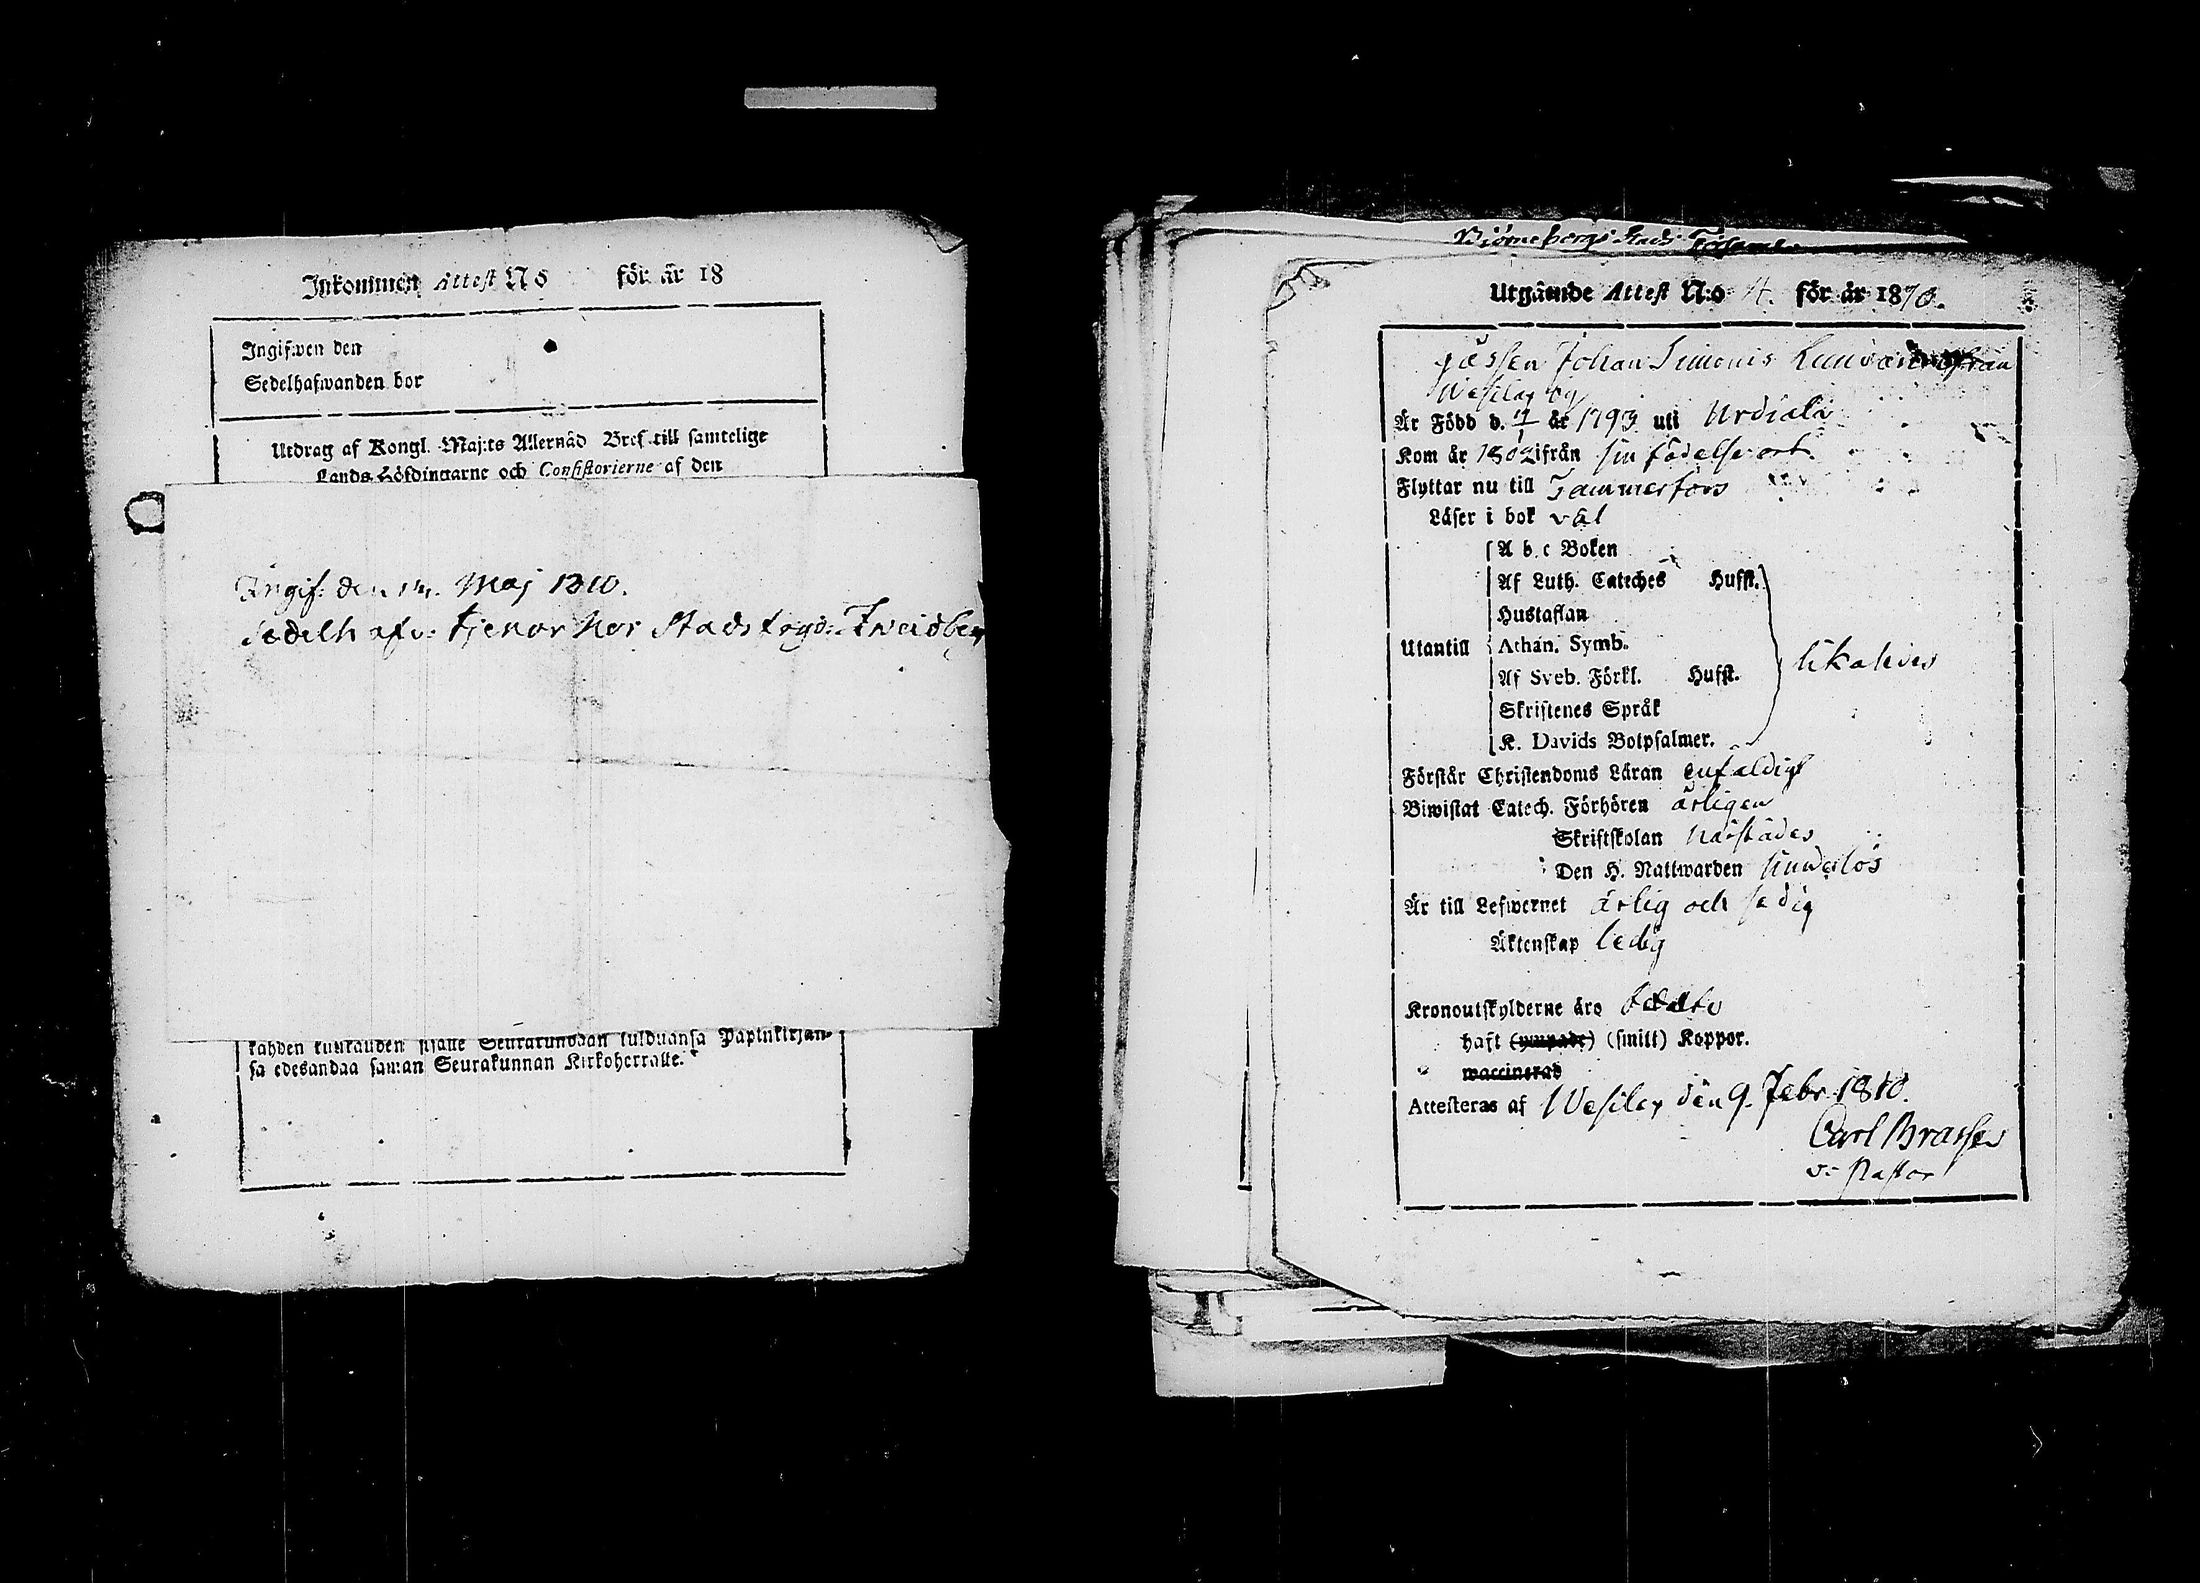 Inkommen Attest No för år 18
Ingifwen den
Sedelhafwanden bor
Utdrag af Kongl. Maj:ts Allernåd Bref till samtelige
Lands-Höfdingarne och Consistorierne af den
Ingif: den 14. Maj 1810.
Sedelhafv: tjenar hos Stads
kahden kuukauden sisälle Seurakundaan tulduansa Papinkirjan-
sa edesandaa saman Seurakunnan Kirkoherralle.
Björneborgs Stads Församl.
Utgående Attest N:o 4. för år 1810.
gossen Johan Simonis från
Wesilax by
Är Född d. år 1793 uti Urdiala
Kom år 1802 ifrån sin födelseort
Flyttar nu till Tammerfors
Läser i bok väl
A b c Boken
Af Luth. Cateches Hufst.
Hustaflan
Utantill Athan. Symb. likaledes
Af Sveb. Förkl. Hufst.
Skriftenes Språk
K. Davids Botpsalmer.
Förstår Christendoms Läran enfaldigt
Biwistat Catech. Förhören årligen
Skriftskolan
Den H. Nattwarden
Är till Lefwernet ärlig och sedig
Äktenskap ledig
Kronoutskylderne äro
haft (ympade) (smitt) Koppor.
waccinerad
Attesteras af Wesilax den 9. Febr. 1810.
Carl
v. Pastor